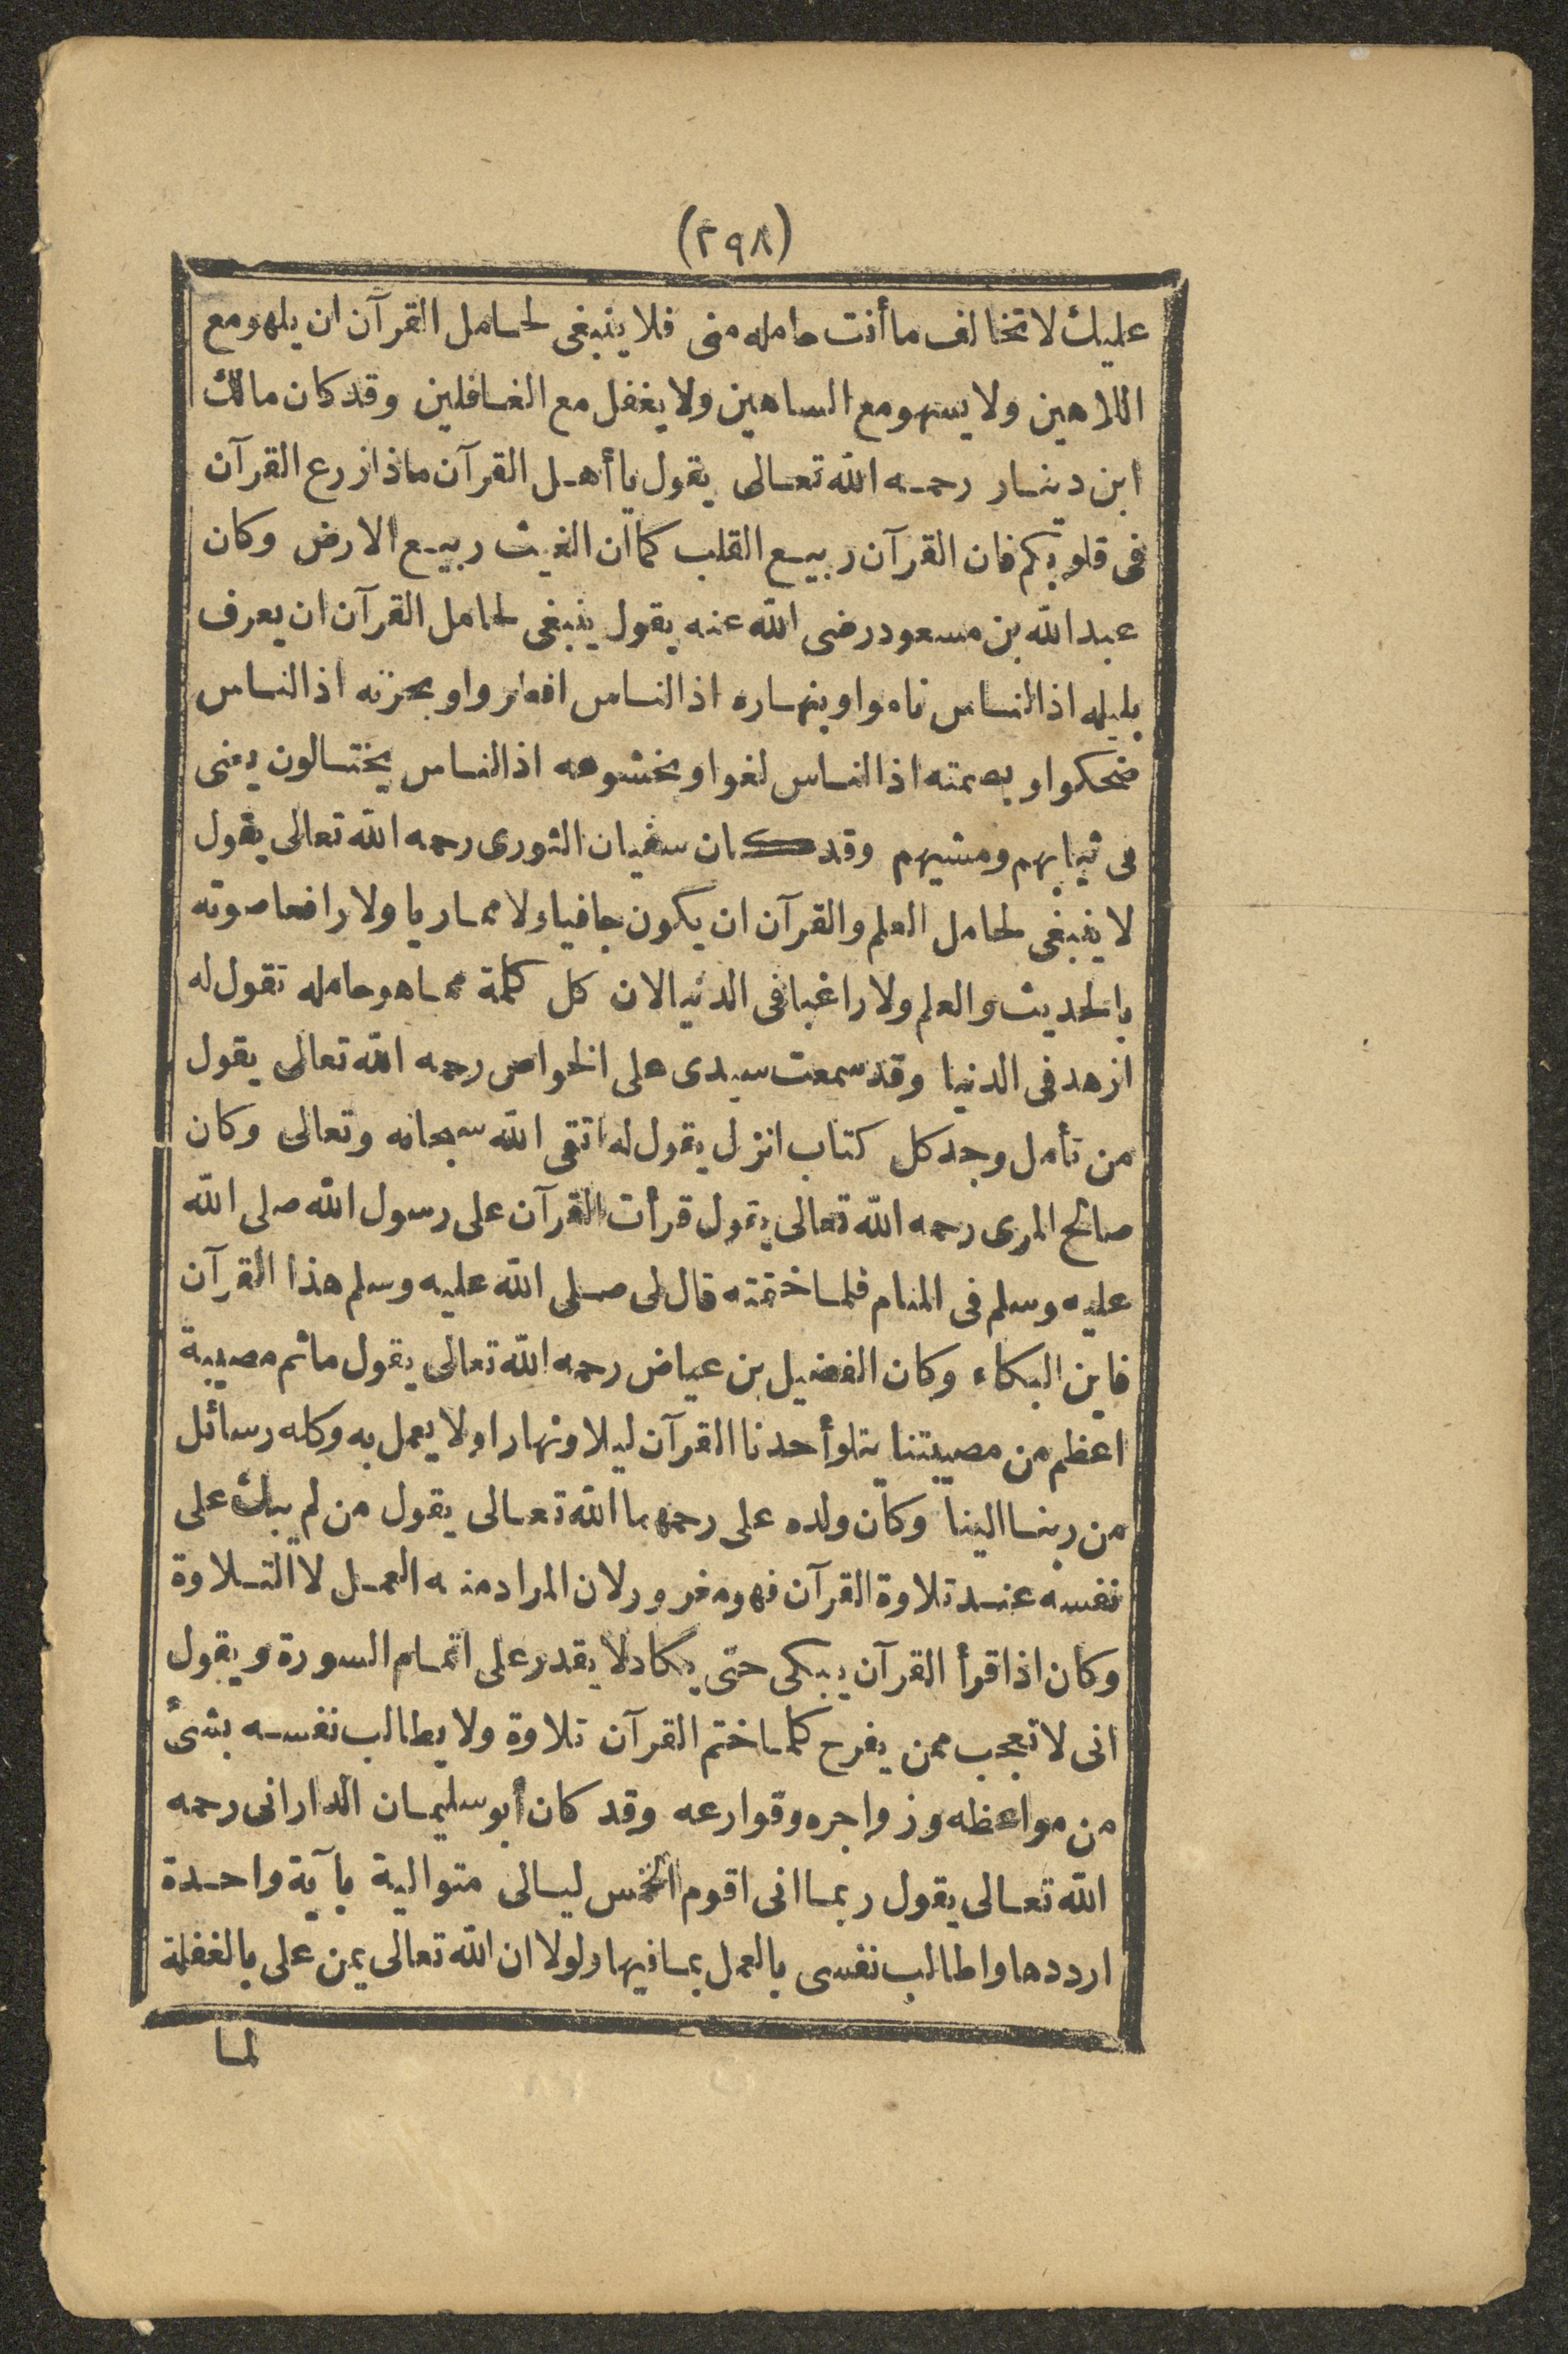 (٢٩٨)
عليك لا تخالف ما أنت حامله منى فلا ينبغى لحامل القرآن ان يلهو مع
اللاهين ولا يسهو مع الساهين ولا يغفل مع الغافلين وقد كان مالك
ابن دينار رحمه الله تعالى يقول يا أهل القرآن ماذا زرع القرآن
فى قلوبكم فان القرآن ربيع القلب كما ان الغيث ربيع الارض وكان
عبد الله بن مسعود رضى الله عنه يقول ينبغى لحامل القرآن ان يعرف
بليله اذا الناس ناموا وبنهاره اذا الناس افطروا وبحزنه اذا الناس
ضحكوا وبصمته اذا الناس لغوا وبخشوعه اذا الناس يختالون يعنى
فى ثيابهم ومشيهم وقد كان سفيان الثورى رحمه الله تعالى يقول
لا ينبغى لحامل العلم والقرآن ان يكون جافيا ولا مماريا ولا رافعا صوته
بالحديث والعلم ولا راغبا فى الدنيا لان كل كلمة مما هو حامله تقول له
ازهد فى الدنيا وقد سمعت سيدى على الخواص رحمه الله تعالى يقول
من تأمل وجد كل كتاب انزل يقول له اتقى الله سبحانه وتعالى وكان
صالح المرى رحمه الله تعالى يقول قرأت القرآن على رسول الله صلى الله
عليه وسلم فى المنام فلما ختمته قال لى صلى الله عليه وسلم هذا القرآن
فاين البكاء وكان الفضيل بن عياض رحمه الله تعالى يقول ما ثم مصيبة
اعظم من مصيبتنا يتلو أحدنا القرآن ليلا ونهارا ولا يعمل به وكله رسائل
من ربنا الينا وكان ولده على رحمهما الله تعالى يقول من لم يبك على
نفسه عند تلاوة القرآن فهو مغرور لان المراد منه العمل لا التلاوة
وكان اذا قرأ القرآن يبكى حتى يكاد لا يقدر على اتمام السورة ويقول
انى لا تعجب ممن يفرح كلما ختم القرآن تلاوة ولا يطالب نفسه بشئ
من مواعظه وزواجره وقوارعه وقد كان أبو سليمان الدارانى رحمه
الله تعالى يقول ربما انى اقوم الخمس ليالى متوالية بآية واحدة
ارددها واطالب نفسى بالعمل بما فيها ولولا ان الله تعالى يمن على بالغفلة
لما